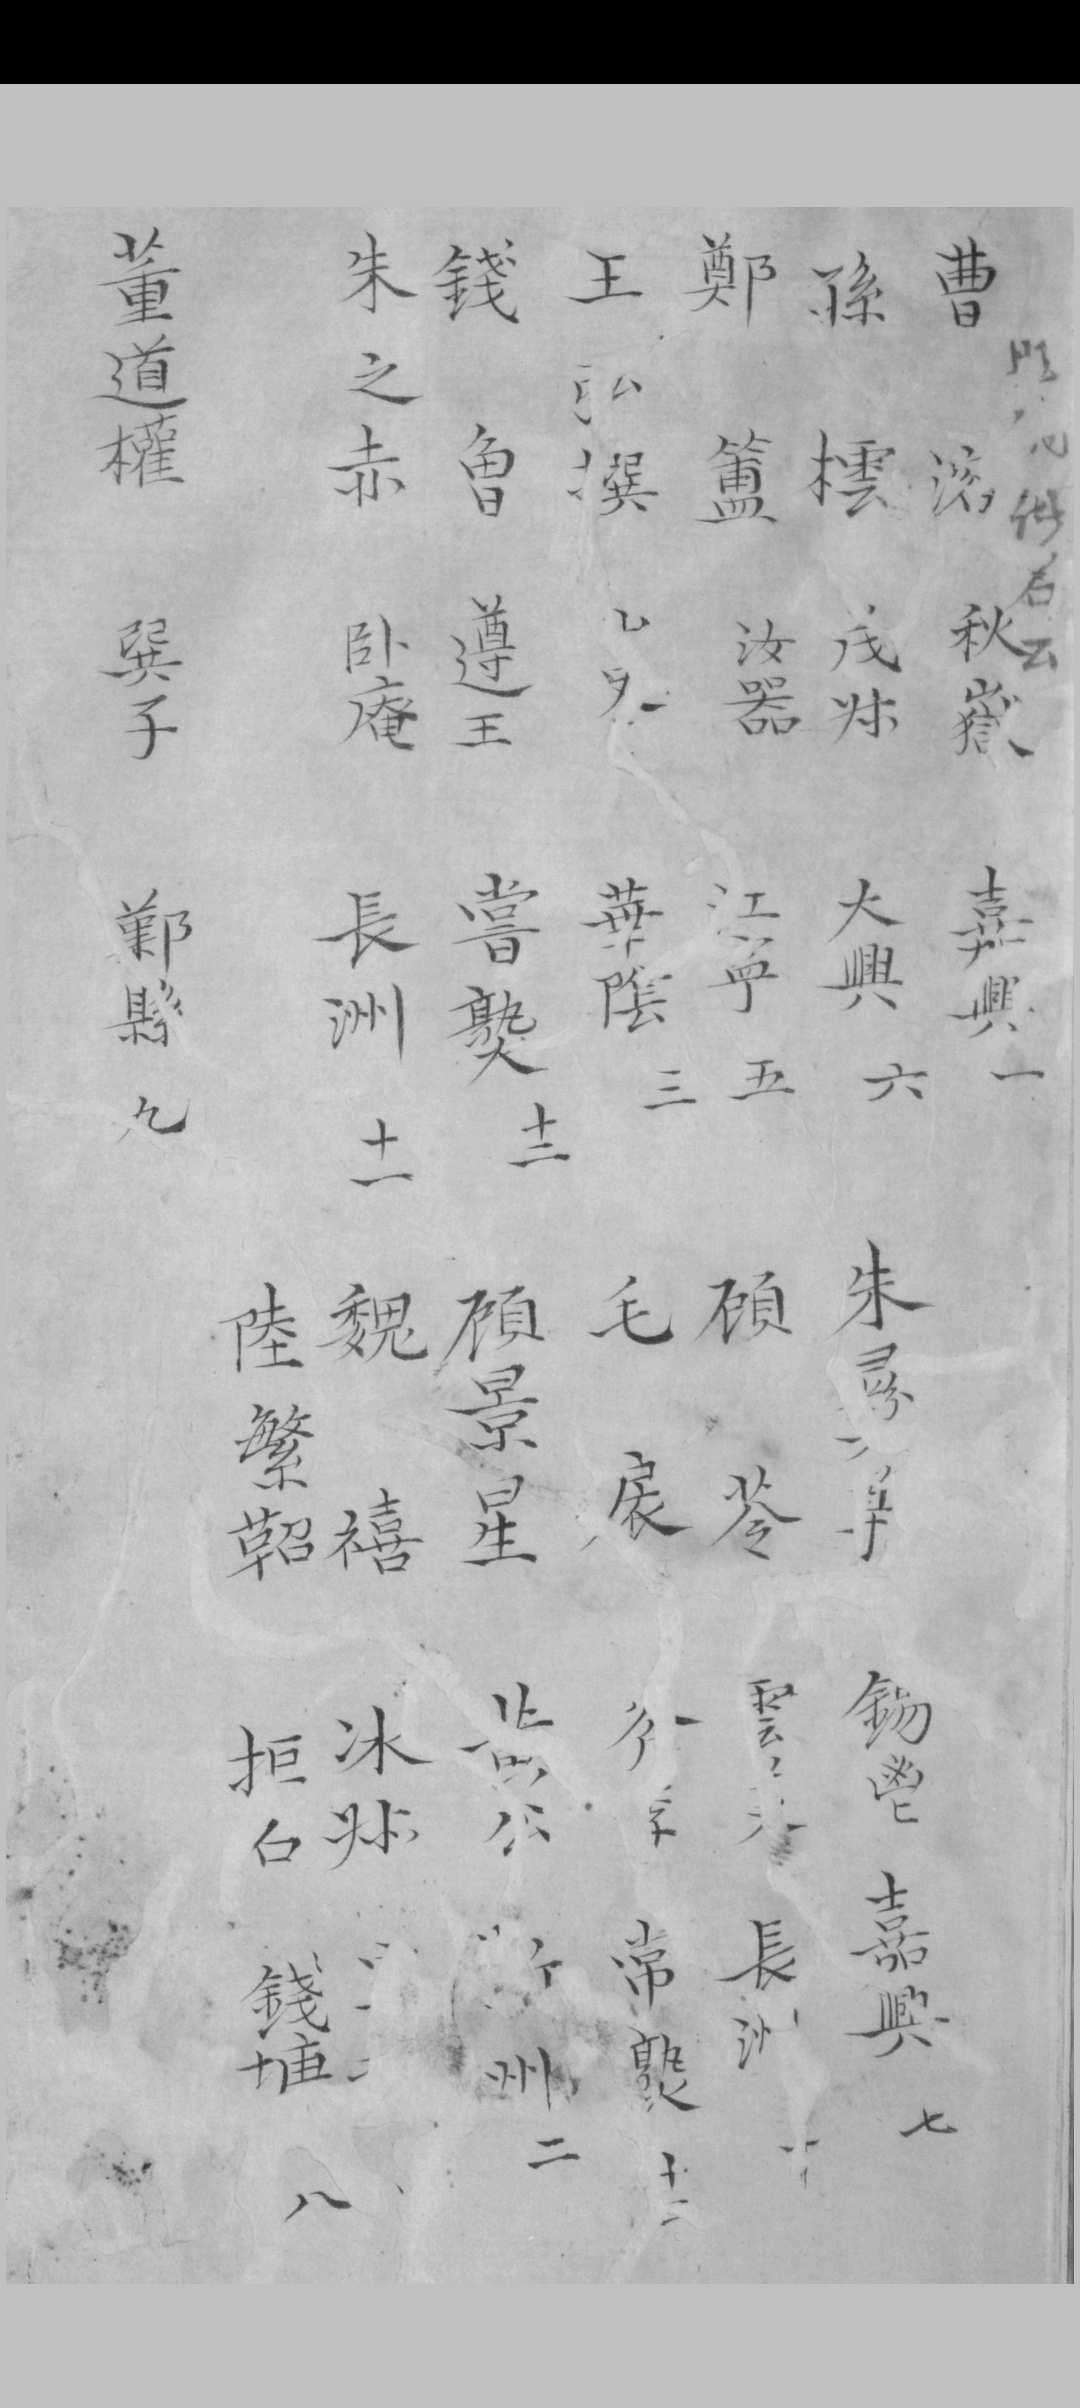 曹溶 秋嶽 嘉興 一
孫橒 戊尗 大興 六
鄭簠 汝器 江寧 五
王弘撰 華陰 三
錢曾 遵王 嘗熟 十三
朱之赤 卧庵 長洲 十一
董道權 巽子 鄞縣 九
朱彝尊 錫鬯 嘉興 七
顧苓 雲美 長洲 十
毛扆 斧季 常熟 十二
顧景星 黃公 州 二
魏禧 冰尗
陸繁弨 拒石 錢塘 八